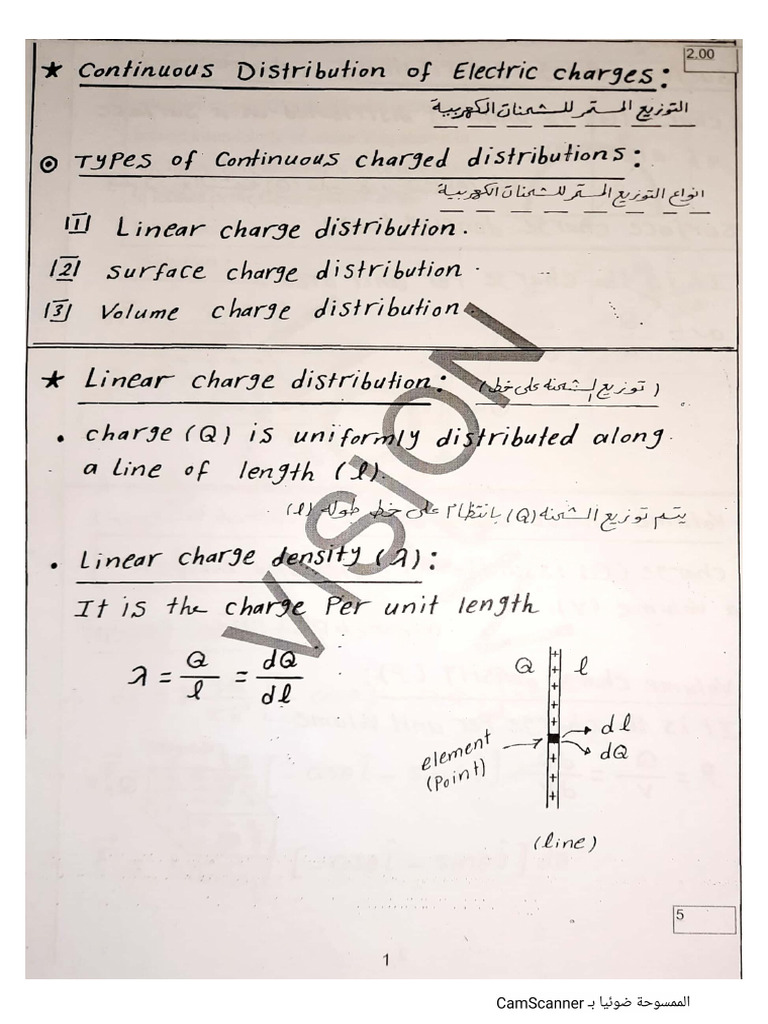 2.00
★ Continuous Distribution of Electric charges:
التوزيع المستمر للشحنات الكهربية
⊙ Types of Continuous charged distributions:
انواع التوزيع المستمر للشحنات الكهربية
[1] Linear charge distribution.
[2] surface charge distribution.
[3] Volume charge distribution.
★ Linear charge distribution: (توزيع الشحنه على خط)
• charge (Q) is uniformly distributed along
a Line of length (l).
يتم توزيع الشحنه (Q) بانتظام على خط طوله (l)
• Linear charge density (λ):
It is the charge Per unit length
λ = Q/l = dQ/dl
Q l
element
(Point)
dl
dQ
(line)
VISION
5
1
الممسوحة ضوئيا بـ CamScanner